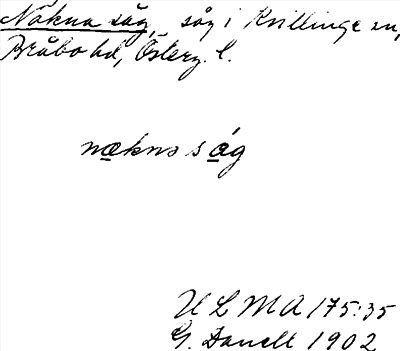 Näkna såg, såg i Kvillinge sn,
Bråbo hd, Österg. l.
nækna såg
ULMA 175:35
G. Danell 1902